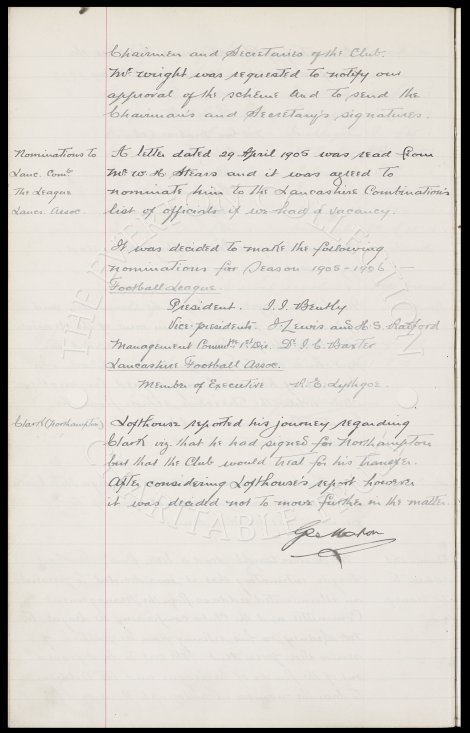 Chairmen and Secretaries of the Club.
Mr. Wright was requested to notify our
approval of the scheme and to send the
Chairman's and Secretary's signatures.
Nominations to
Lanc. Comb.
The League
Lancs. Assoc.
A letter dated 29 April 1905 was read from
Mr. W. H. Stears and it was agreed to
nominate him to the Lancashire Combination's
list of officials if we had a vacancy.
It was decided to make the following
nominations for Season 1905-1906 -
Football League.
President. J. J. Bently
Vice-presidents. J Lewis and H. S. Radford
Management Commee. 1st Div. Dr. J. C. Baxter
Lancashire Football Assoc.
Member of Executive R. E. Lythgoe
Clark (Northampton)
Lofthouse reported his journey regarding
Clark viz. that he had signed for Northampton
but that the Club would treat for his transfer.
After considering Lofthouse's report however
it was decided not to move further in the matter.
Geo Mahon
THE EVERTON COLLECTION
CHARITABLE